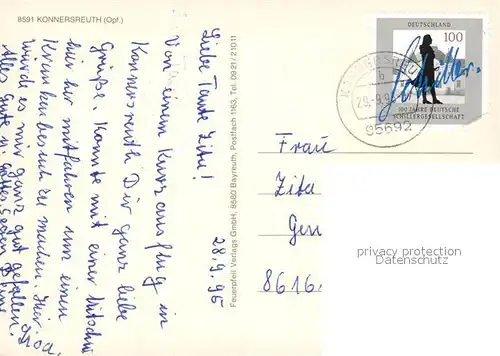 8591 KONNERSREUTH (Opf.)
Liebe Tante Zita!
Von einem Kurzausflug in
Konnersreuth Dir ganz liebe
Grüße. Konnte mit einer
hier her mitfahren um einen
Krankenbesuch zu machen. Hier
würde es mir ganz gut gefallen.
Alles Gute u. Gottes Segen
28.9.95
Feuerpfeil Verlags GmbH, 8580 Bayreuth, Postfach 1163, Tel. 0921/21011
DEUTSCHLAND
100
Schiller.
100 JAHRE DEUTSCHE
SCHILLERGESELLSCHAFT
KONNERSREUTH
b
95692
Frau
Zita
Gen
8616
privacy protection
Datenschutz